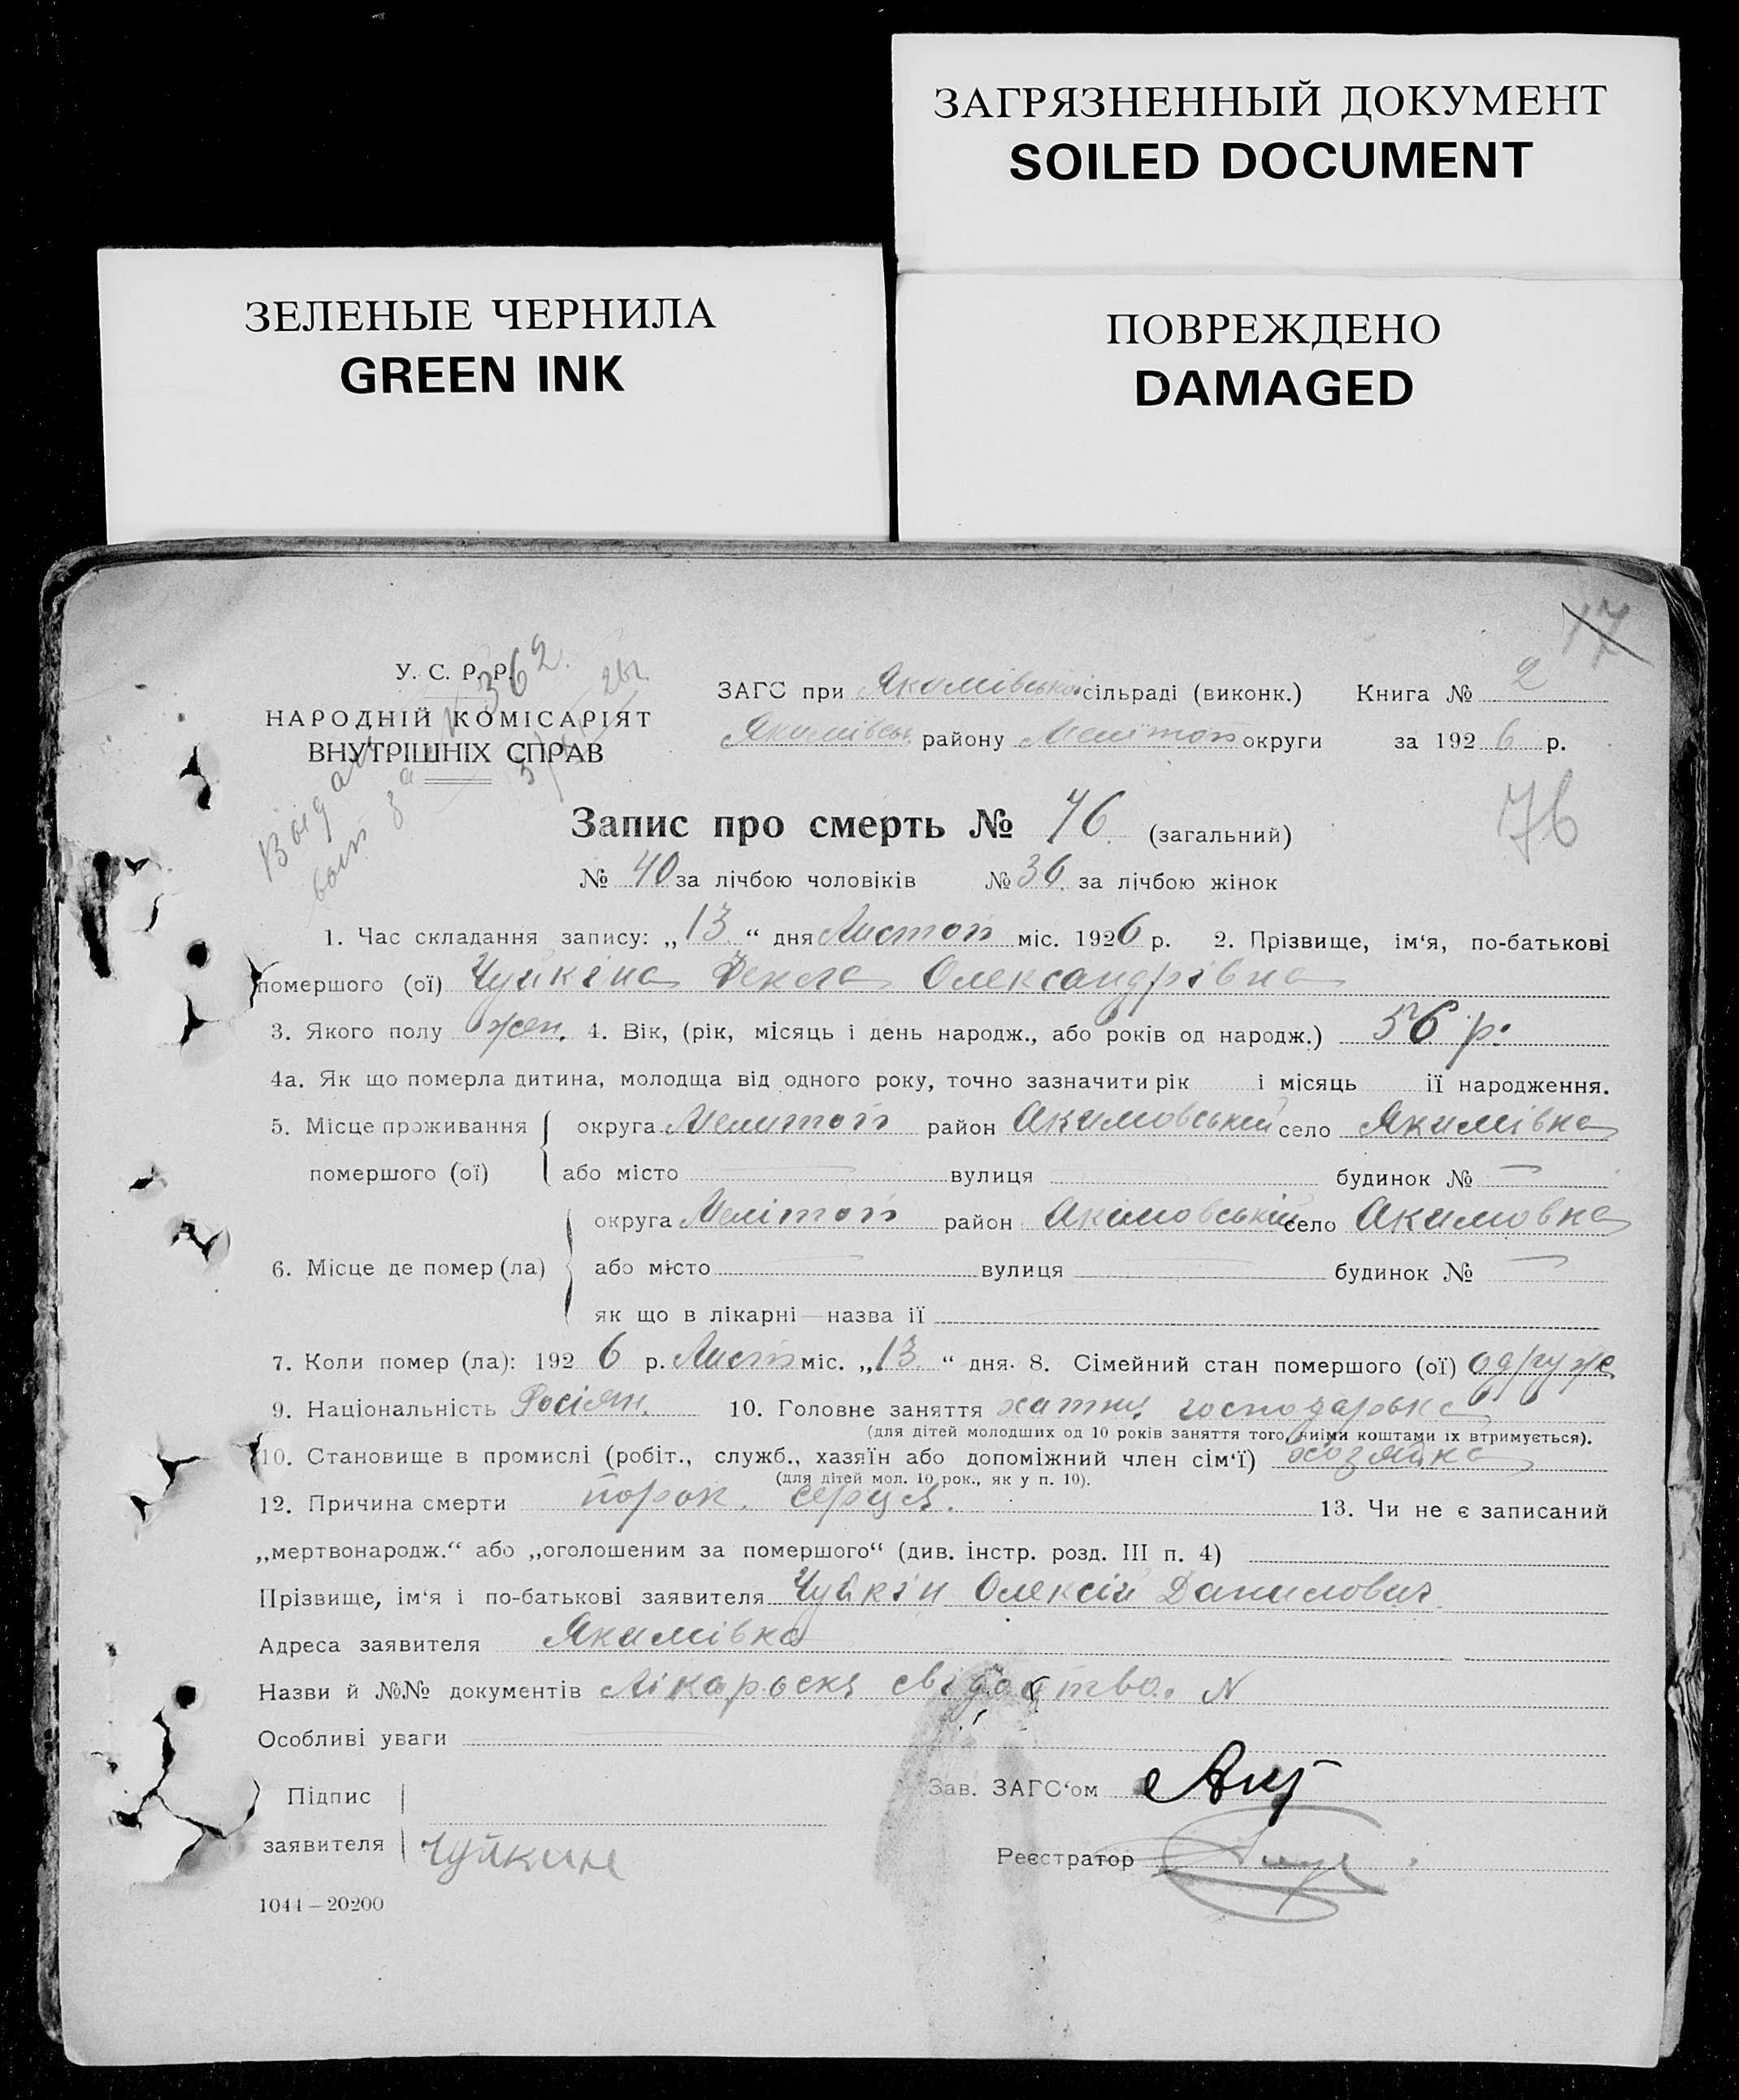 ЗАГРЯЗНЕННЫЙ ДОКУМЕНТ
SOILED DOCUMENT
ЗЕЛЕНЫЕ ЧЕРНИЛА
GREEN INK
ПОВРЕЖДЕНО
DAMAGED
17
У. С. Р. Р.
362
НАРОДНІЙ КОМІСАРІЯТ
ВНУТРІШНІХ СПРАВ
ЗАГС при Якимівській сільраді (виконк.) Книга № 2
Якимівськ. району Мелітоп округи за 1926 р.
76
Запис про смерть № 76 (загальний)
№ 40 за лічбою чоловіків № 36 за лічбою жінок
1. Час складання запису: „13“ дня Листоп міс. 1926 р. 2. Прізвище, ім‘я, по-батькові
помершого (ої) Чуйкіна Фекла Олександрівна
3. Якого полу жен. 4. Вік, (рік, місяць і день народж., або років од народж.) 56 р.
4а. Як що померла дитина, молодща від одного року, точно зазначити рік і місяць її народження.
5. Місце проживання округа Мелитоп район Акимовський село Якимівка
помершого (ої) або місто вулиця будинок №
округа Мелітоп район Акимовський село Акимовка
6. Місце де помер (ла) або місто вулиця будинок №
як що в лікарні — назва її
7. Коли помер (ла): 1926 р. Лист міс. „13“ дня. 8. Сімейний стан помершого (ої) одруже
9. Національність Росіян. 10. Головне заняття хатня господарька
(для дітей молодших од 10 років заняття того, чиїми коштами їх втримується).
10. Становище в промислі (робіт., служб., хазяїн або допоміжний член сім‘ї) хозяйка
(для дітей мол. 10 рок., як у п. 10).
12. Причина смерти порок. серця. 13. Чи не є записаний
„мертвонародж.“ або „оголошеним за помершого“ (див. інстр. розд. III п. 4)
Прізвище, ім‘я і по-батькові заявителя Чуйкін Олексій Данилович
Адреса заявителя Якимівка
Назви й №№ документів Лікарьске свідоцтво. N
Особливі уваги
Підпис
заявителя Чуйкин
Зав. ЗАГС‘ом
Реєстратор
1044—20200